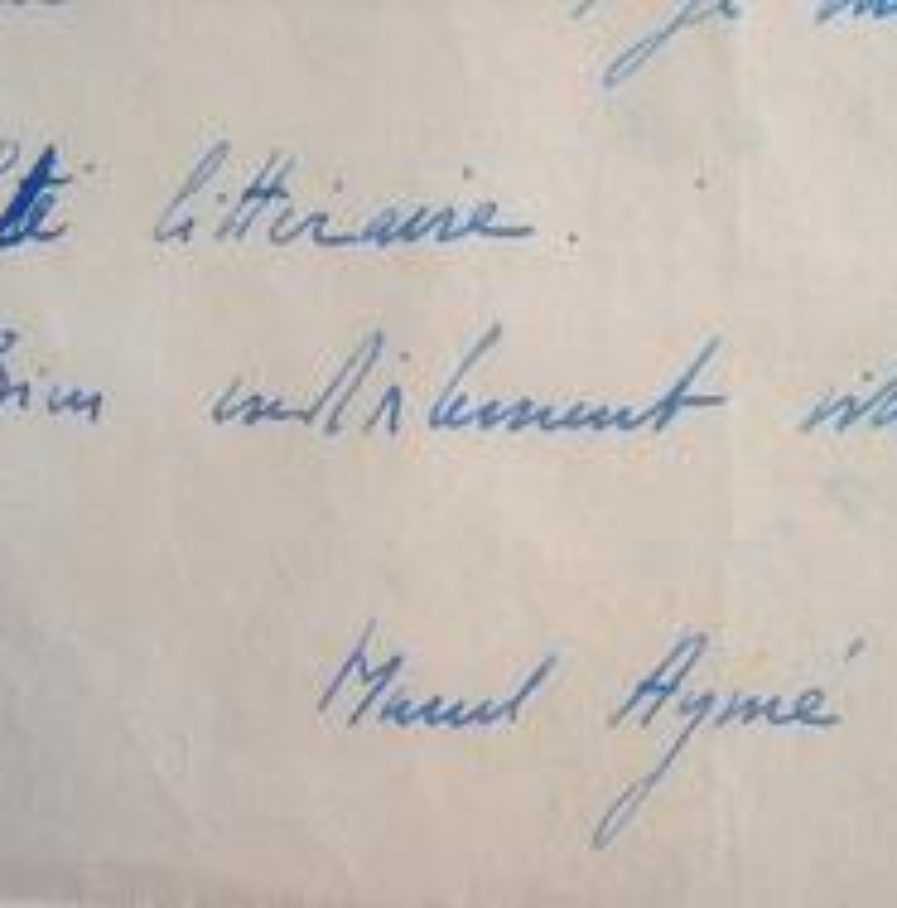 je
té littéraire.
Bien cordialement
Marcel Aymé